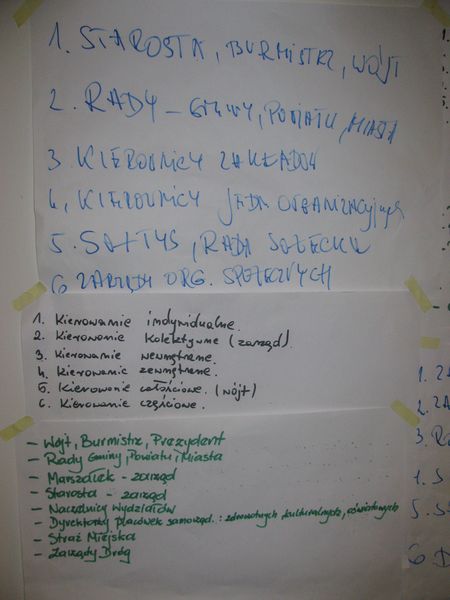 1. STAROSTA, BURMISTRZ, WÓJT
2. RADY – GMINY, POWIATU, MIASTA
3. KIEROWNICY ZAKŁADÓW
4. KIEROWNICY JEDN ORGANIZACYJNYCH
5. SOŁTYS, RADA SOŁECKA
6 ZARZĄDY ORG. SPOŁECZNYCH
1. Kierowanie indywidualne.
2. Kierowanie kolektywne (zarząd).
3. Kierowanie wewnętrzne.
4. Kierowanie zewnętrzne.
5. Kierowanie całościowe. (wójt)
6. Kierowanie częściowe.
– Wójt, Burmistrz, Prezydent
– Rady Gminy, Powiatu, Miasta
– Marszałek – zarząd
– Starosta – zarząd
– Naczelnicy wydziałów
– Dyrektorzy placówek samorząd.: zdrowotnych, kulturalnych, oświatowych
– Straż Miejska
– Zarządy Dróg
1. ZA
2. ZA
3. RA
1. S
5. S
6 D